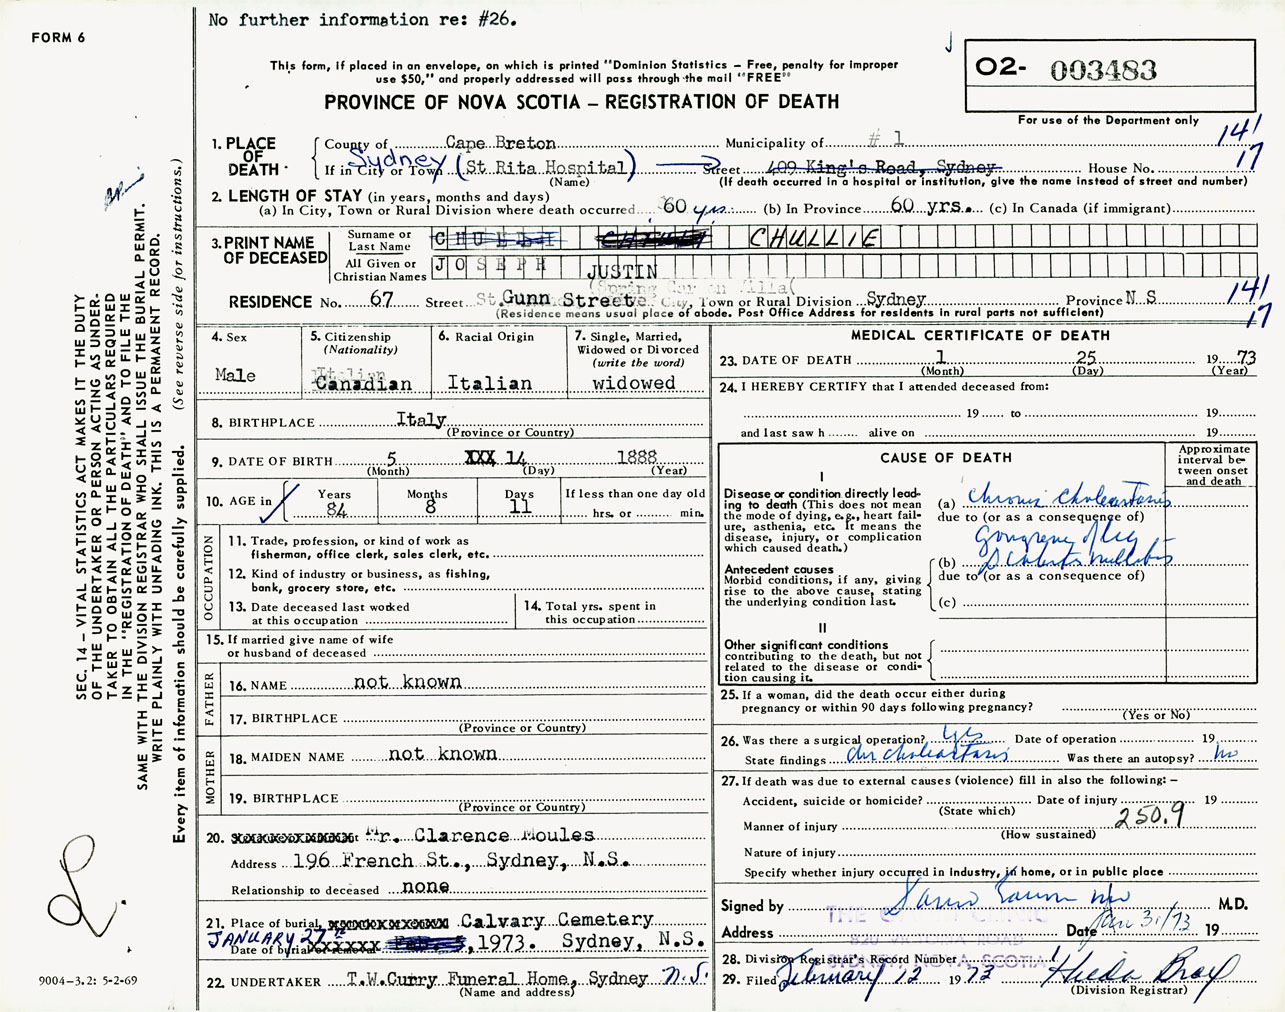 No further information re: #26.
FORM 6
This form, if placed in an envelope, on which is printed "Dominion Statistics – Free, penalty for improper
use $50," and properly addressed will pass through the mail "FREE"
O2- 003483
PROVINCE OF NOVA SCOTIA – REGISTRATION OF DEATH
For use of the Department only
141
17
1. PLACE OF DEATH
County of Cape Breton Municipality of # 1
If in City or Town Sydney (St Rita Hospital) Street 409 King's Road, Sydney House No.
(Name) (If death occurred in a hospital or institution, give the name instead of street and number)
2. LENGTH OF STAY (in years, months and days)
(a) In City, Town or Rural Division where death occurred 60 yrs. (b) In Province 60 yrs. (c) In Canada (if immigrant)
3. PRINT NAME OF DECEASED
Surname or Last Name CHULLIE
All Given or Christian Names JOSEPH JUSTIN
RESIDENCE No. 67 Street Gunn Street City, Town or Rural Division Sydney Province N S
141
17
(Residence means usual place of abode. Post Office Address for residents in rural parts not sufficient)
4. Sex
Male
5. Citizenship
(Nationality)
Canadian
6. Racial Origin
Italian
7. Single, Married,
Widowed or Divorced
(write the word)
widowed
8. BIRTHPLACE Italy
(Province or Country)
9. DATE OF BIRTH 5 XXX 14 1888
(Month) (Day) (Year)
10. AGE in
Years Months Days If less than one day old
84 8 11 hrs. or min.
OCCUPATION
11. Trade, profession, or kind of work as
fisherman, office clerk, sales clerk, etc.
12. Kind of industry or business, as fishing,
bank, grocery store, etc.
13. Date deceased last worked
at this occupation
14. Total yrs. spent in
this occupation
15. If married give name of wife
or husband of deceased
FATHER
16. NAME not known
17. BIRTHPLACE
(Province or Country)
MOTHER
18. MAIDEN NAME not known
19. BIRTHPLACE
(Province or Country)
20. Mr. Clarence Moules
Address 196 French St., Sydney, N.S.
Relationship to deceased none
21. Place of burial, Calvary Cemetery
JANUARY 27th
Date of burial or removal Feb. 5, 1973. Sydney, N.S.
22. UNDERTAKER T.W.Curry Funeral Home, Sydney N.S.
(Name and address)
MEDICAL CERTIFICATE OF DEATH
23. DATE OF DEATH 1 25 1973
(Month) (Day) (Year)
24. I HEREBY CERTIFY that I attended deceased from:
19 to 19
and last saw h alive on 19
CAUSE OF DEATH
Approximate interval between onset and death
I
Disease or condition directly lead-
ing to death (This does not mean
the mode of dying, e.g., heart fail-
ure, asthenia, etc. It means the
disease, injury, or complication
which caused death.)
(a) chronic
due to (or as a consequence of)
gangrene of leg
Antecedent causes
Morbid conditions, if any, giving
rise to the above cause, stating
the underlying condition last.
(b) Diabetes mellitus
due to (or as a consequence of)
(c)
II
Other significant conditions
contributing to the death, but not
related to the disease or condi-
tion causing it.
25. If a woman, did the death occur either during
pregnancy or within 90 days following pregnancy?
(Yes or No)
26. Was there a surgical operation? yes Date of operation 19
State findings Was there an autopsy? no
27. If death was due to external causes (violence) fill in also the following: –
Accident, suicide or homicide? Date of injury 19
(State which)
Manner of injury 250.9
(How sustained)
Nature of injury
Specify whether injury occurred in Industry, in home, or in public place
Signed by M.D.
Address Date Jan 31/73 19
28. Division Registrar's Record Number
29. Filed February 12 1973
(Division Registrar)
SEC. 14 – VITAL STATISTICS ACT MAKES IT THE DUTY
OF THE UNDERTAKER OR PERSON ACTING AS UNDER-
TAKER TO OBTAIN ALL THE PARTICULARS REQUIRED
IN THE "REGISTRATION OF DEATH" AND TO FILE THE
SAME WITH THE DIVISION REGISTRAR WHO SHALL ISSUE THE BURIAL PERMIT.
WRITE PLAINLY WITH UNFADING INK. THIS IS A PERMANENT RECORD.
Every item of information should be carefully supplied. (See reverse side for instructions.)
9004-3.2: 5-2-69